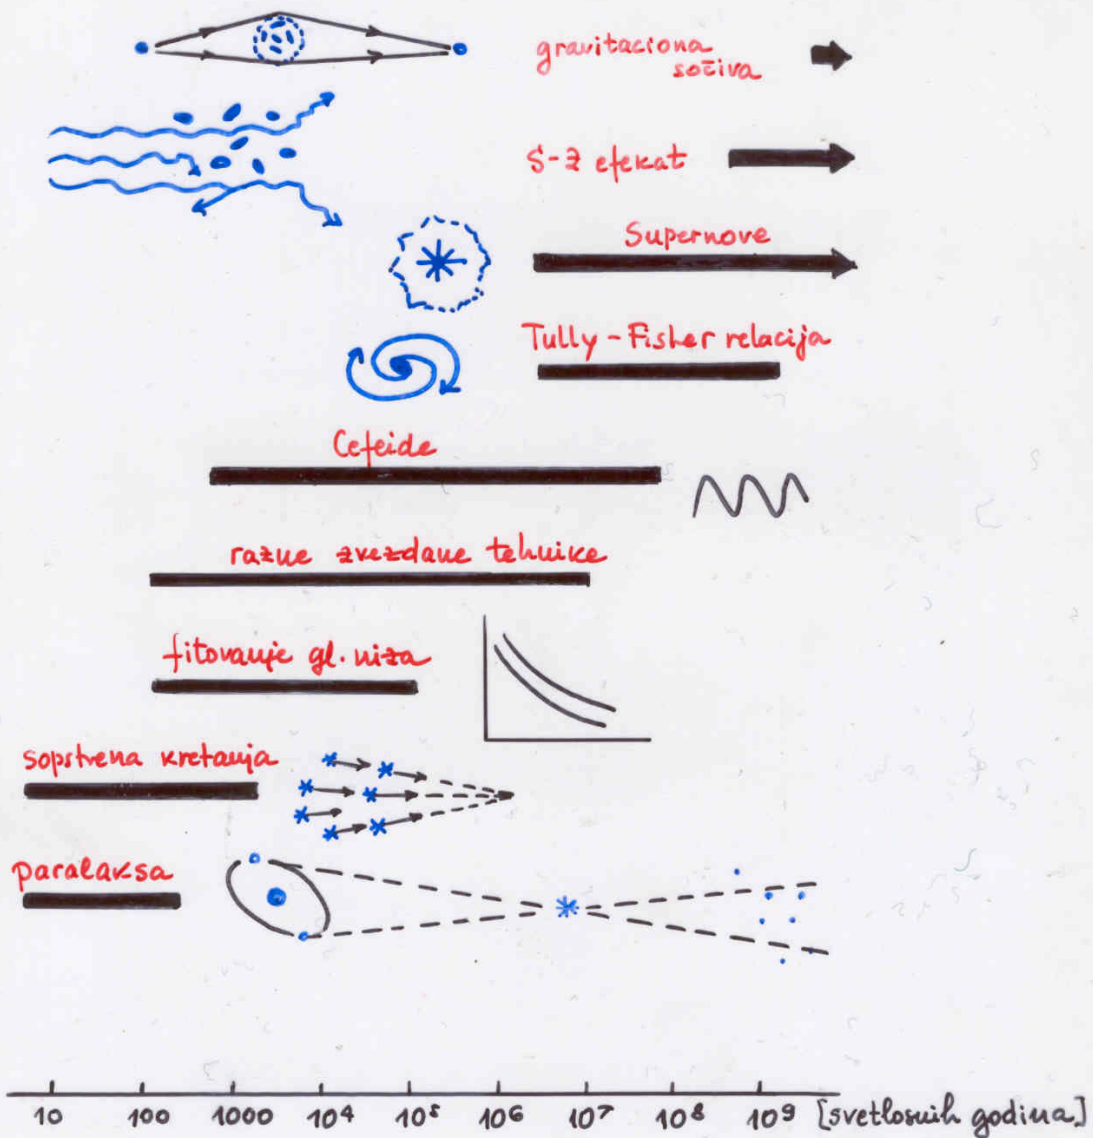 gravitaciona
sočiva
S-Z efekat
Supernove
Tully-Fisher relacija
Cefeide
razne zvezdane tehnike
fitovanje gl. niza
sopstvena kretanja
paralaksa
10 100 1000 10⁴ 10⁵ 10⁶ 10⁷ 10⁸ 10⁹ [svetlosnih godina]